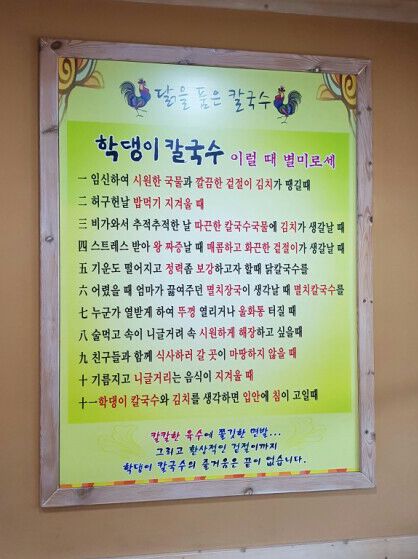 닭을 품은 칼국수
학댕이 칼국수 이럴 때 별미로세
一 임신하여 시원한 국물과 깔끔한 겉절이 김치가 땡길때
二 허구헌날 밥먹기 지겨울 때
三 비가와서 추적추적한 날 따끈한 칼국수국물에 김치가 생각날 때
四 스트레스 받아 왕 짜증날 때 매콤하고 화끈한 겉절이가 생각날 때
五 기운도 떨어지고 정력좀 보강하고자 할때 닭칼국수를
六 어렸을 때 엄마가 끓여주던 멸치장국이 생각날 때 멸치칼국수를
七 누군가 열받게 하여 뚜껑 열리거나 울화통 터질 때
八 술먹고 속이 니글거려 속 시원하게 해장하고 싶을때
九 친구들과 함께 식사하러 갈 곳이 마땅하지 않을 때
十 기름지고 니글거리는 음식이 지겨울 때
十一 학댕이 칼국수와 김치를 생각하면 입안에 침이 고일때
칼칼한 육수에 쫄깃한 면발...
그리고 환상적인 겉절이까지
학댕이 칼국수의 즐거움은 끝이 없습니다.